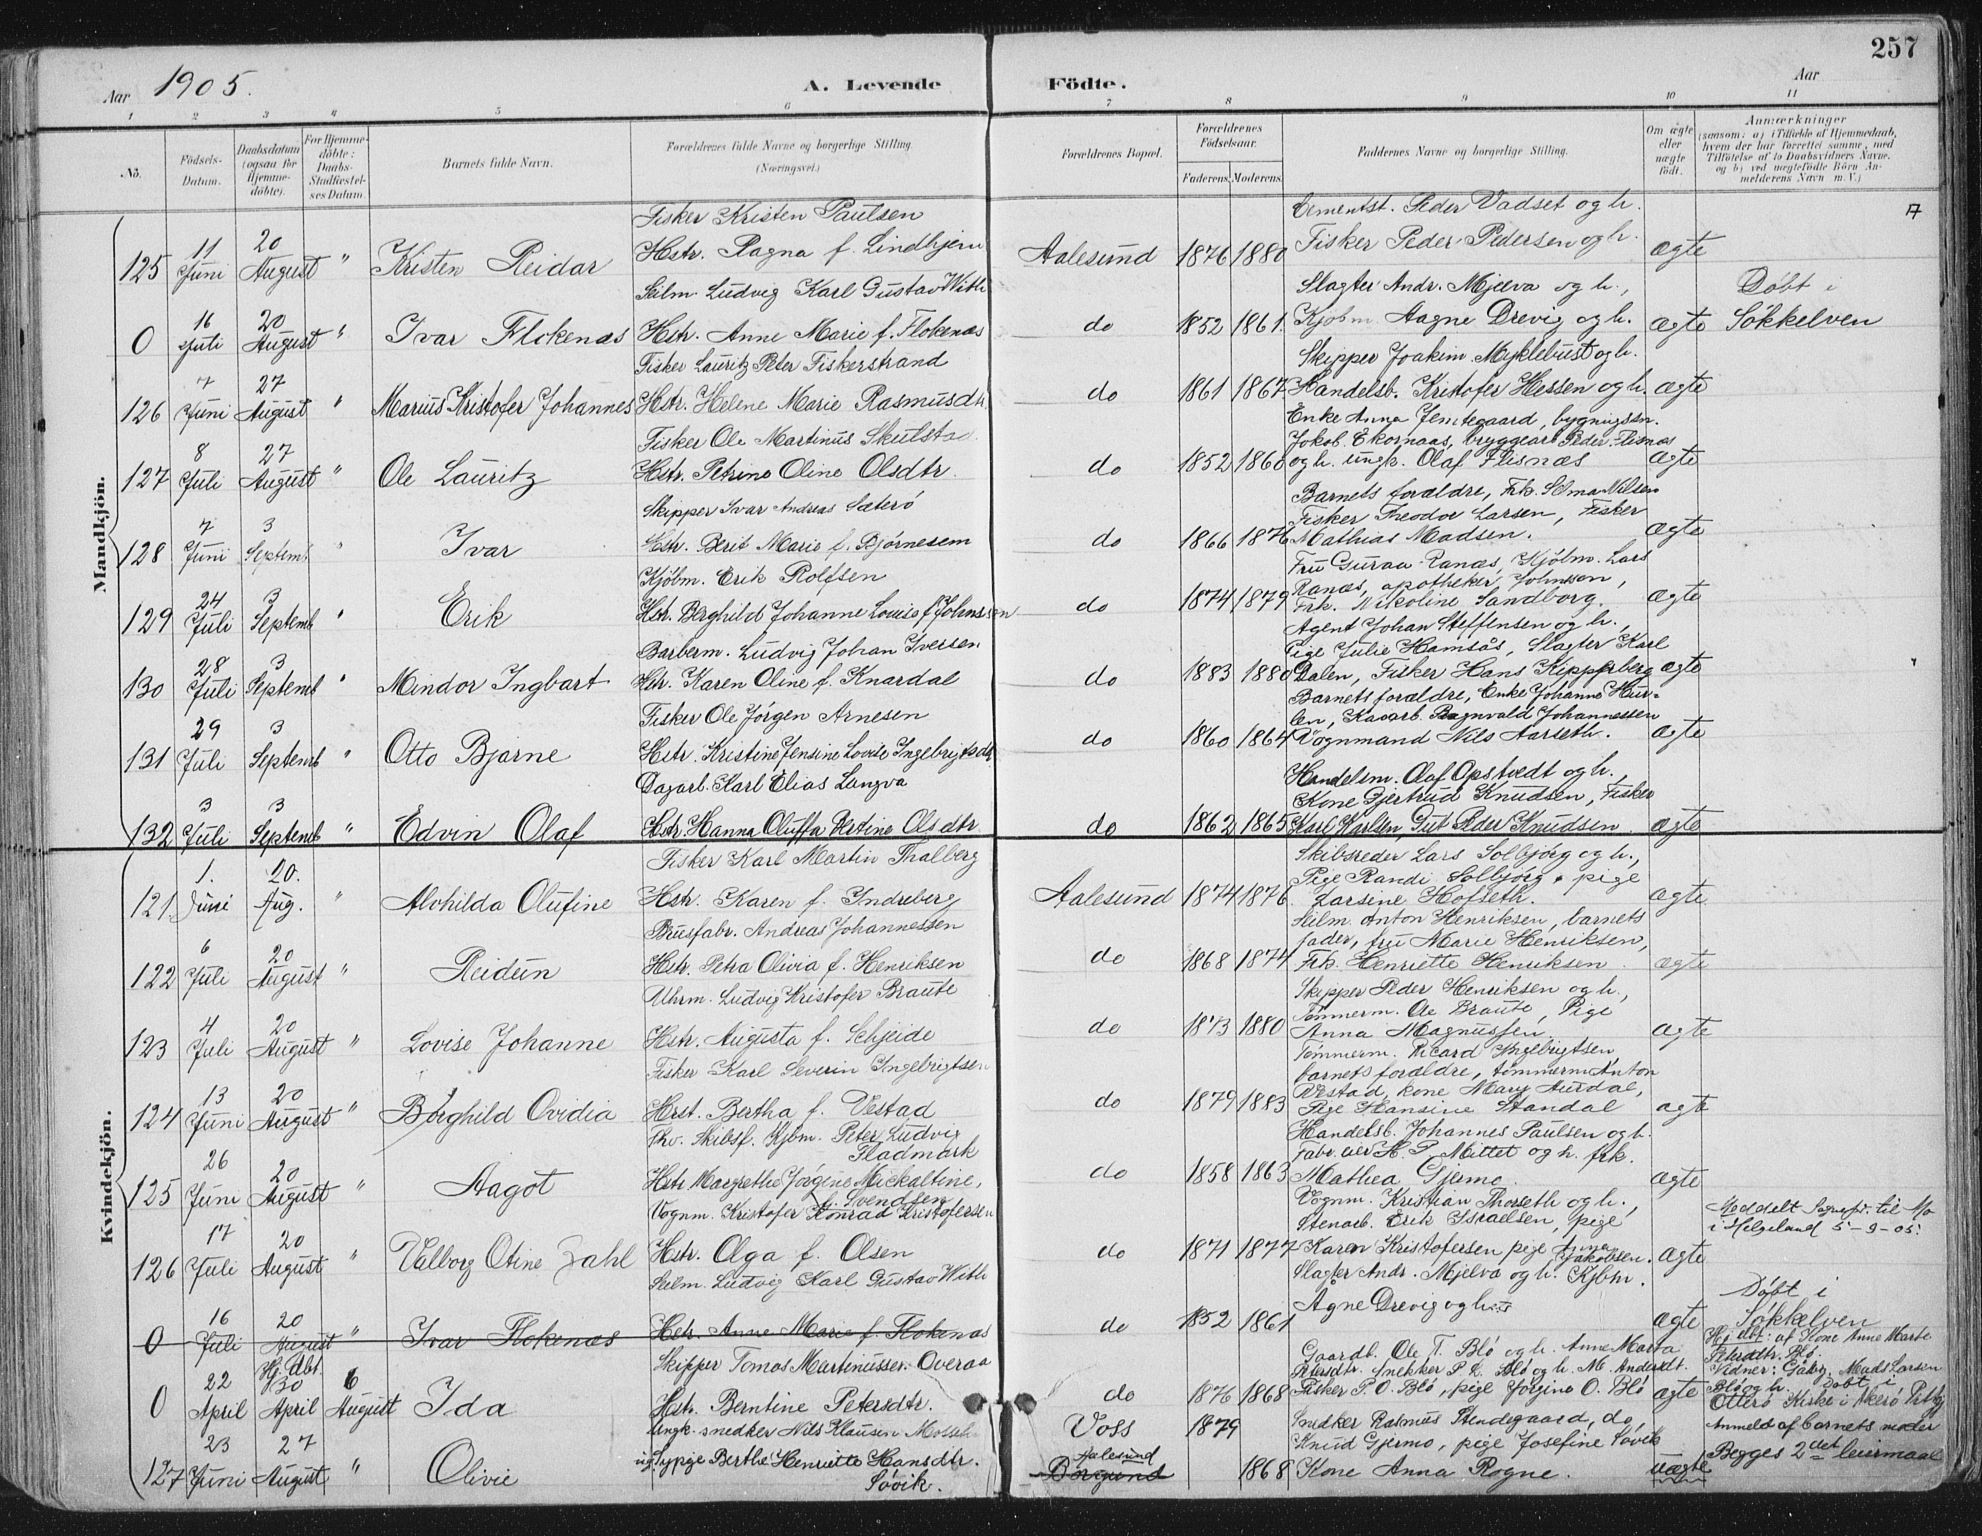 257
Aar 1905. A. Levende Födte. Aar
1 2 3 4 5 6 7 8 9 10 11
No. Födsels-Datum. Daabsdatum (ogsaa for Hjemmedöbte). For Hjemmedöbte: Daabs-Stadfæstelses Datum Barnets fulde Navn. Forældrenes fulde Navne og borgerlige Stilling. (Næringsvei.) Forældrenes Bopæl. Forældrenes Födselsaar. Faderens. Moderens. Faddernes Navne og borgerlige Stilling. Om ægte eller uægte födt. Anmærkninger (saasom: a) i Tilfælde af Hjemmedaab, hvem der har forrettet samme, med Tilföielse af to Daabsvidners Navne, og b) ved uægtefödte Börn Anmelderens Navn m. V.)
Mandkjön.
Fisker Kristen Paulsen Cementst. Peder Vadset og h.
125 11 Juni 20 August " Kristen Reidar Hstr. Ragna f. Lindhjem Aalesund 1876 1880 Fisker Peder Pedersen og h. ægte
Skilm. Ludvig Karl Gustav With Slagter Andr. Mjelva og h., Döbt i
0 16 Juli 20 August " Ivar Flokenæs Hstr. Anne Marie f. Flokenæs do 1852 1861. Kjöbm. Aagne Drevig og h. ægte Sökkelven
Fisker Lauritz Peter Fiskerstrand Skipper Joakim Myklebust og h.
126 7 Juni 27 August " Marius Kristofer Johannes Hstr. Helene Marie Rasmusdtr. do 1861 1867 Handelsb. Kristofer Hessen og h. ægte
Enke Anna Jemtegaard, bygningssn.
Fisker Ole Martinus Skulstad Jokob Ekornaas, bryggearb. Peder Flisnæs
127 8 Juli 27 August " Ole Lauritz Hstr. Petrine Oline Olsdtr. do 1852 1860 og h. ungk. Olaf Flisnæs ægte
Barnets forældre, Frk. Selma Nilsen
Skipper Ivar Andreas Sæterö Fisker Theodor Larsen, Fisker
128 7 Juni 3 Septemb " Ivar Hstr. Berit Marie f. Björnesem do 1866 1876 Mathias Madsen. ægte
Fru Guraa Ranæs, Kjöbm. Lars
Kjöbm. Erik Rolfsen Ranæs, apotheker Johnsen,
129 24 Juli 3 Septemb " Erik Hstr. Berghild Johanne Louise f. Johnsen do 1874 1879 Frk. Nikoline Sandborg. ægte
Agent Johan Steffensen og h.,
Barberm. Ludvig Johan Iversen Pige Julie Hamsås, Slagter Karl
130 28 Juli 3 Septemb " Mindor Ingbart Hstr. Karen Oline f. Knardal do 1883 1880 Dalen, Fisker Hans Kippersberg ægte
Barnets forældre, Enke Johanne Hur-
Fisker Ole Jörgen Arnesen len, Kaarb. Ragnvald Johannessen
131 29 Juli 3 Septemb " Otto Bjarne Hstr. Kristine Jensine Lovise Ingebrigtsdtr do 1860 1864 Vognmand Nils Aarseth. ægte
Dagarb. Karl Elias Langva Handelsm. Olaf Opstvedt og h.,
Kone Gjertrud Knudsen, Fisker
132 3 Juli 3 Septemb " Edvin Olaf Hstr. Hanna Oluffa Bertine Olsdtr do 1862 1865 Karl Karlsen, Gut Peder Knudsen ægte
Kvindekjön.
Fisker Karl Martin Thalberg Skibsreder Lars Solbjörg og h.,
Pige Randi Solbjörg, pige
121 1. Juni 20. Aug. " Alvhilda Olufine Hstr. Karen f. Indreberg Aalesund 1874 1876 Larsine Hofseth. ægte
Skilm. Anton Henriksen, barnets
Brusfabr. Andreas Johannessen fader, fru Marie Henriksen,
122 6 Juli 20 August " Reidun Hstr. Petra Olivia f. Henriksen do 1868 1874 Frk. Henriette Henriksen. ægte
Uhrm. Ludvig Kristofer Braute Skipper Peder Henriksen og h.,
Tömmerm. Ole Braute, Pige
123 4 Juli 20 August " Lovise Johanne Hstr. Augusta f. Schjeide do 1873 1880 Anna Magnussen ægte
Tömmerm. Ricard Ingebrigtsen,
Fisker Karl Severin Ingebrigtsen barnets forældre, tömmerm Anton
124 13 Juni 20 August " Borghild Ovidia Hstr. Bertha f. Vestad do 1879 1883 Vestad, kone Mary Aurdal,
Pige Hansine Standal ægte
Fhv. Skibsf. Kjbm. Peter Ludvig Fladmark Handelsb. Johannes Paulsen og h.
Fabr.eier H. P. Mittet og h. frk.
125 26 Juni 20 August " Aagot Hstr Margrethe Jörgine Mickaltine, f. Svendsen do 1858 1863 Mathea Gjermo. ægte
Vognm. Kristofer Konrad Kristofersen Vognm. Kristian Thorseth og h., Meddelt Sognepr. til Mo
Stenarb. Erik Israelsen, pige i Helgeland 5-9-05.
126 17 Juli 20 August " Valborg Otine Dahl Hstr. Olga f. Olsen do 1871 1877 Karen Kristofersen pige Anna Jakobsen. ægte
Skilm. Ludvig Karl Gustav With Slagter Andr. Mjelva og h. Kjbm. Döbt i
0 16 Juli 20 August " Ivar Flokenæs Hstr. Anne Marie f. Flokenæs do 1852 1861 Agne Drevig og h. ægte Sökkelven
Skipper Tomas Martinussen Overaa Gaardb. Ole T. Blö og h. Anne Marta Hj.dbt: af Kone Anne Marte Petersdtr. Blö.
Petersdtr. Snekker P. L. Blö og h. M. Andersdt. Vidner: Gabr. Mads Larsen
0 22 April Hj. dbt. 30 April 6 August Ida Hstr. Berntine Petersdtr. do 1876 1868 Fisker P. O. Blö, pige Jörgine O. Blö ægte Blö og h. Döbt i Otterö Kirke i Akerö Prstgj
Ungk. snedker Nils Klausen Voss 1879 Snedker Rasmus Stendegaard, do. Anmeld af barnets moder
Knud Gjermo, pige Josefine Sövik
127 23 Juni 27 August " Olivie og pige Berthe Henriette Hansdtr. Sövik. Aalesund Borgund 1868 Kone Anna Rogne. uægte Begges 2det leiermaal